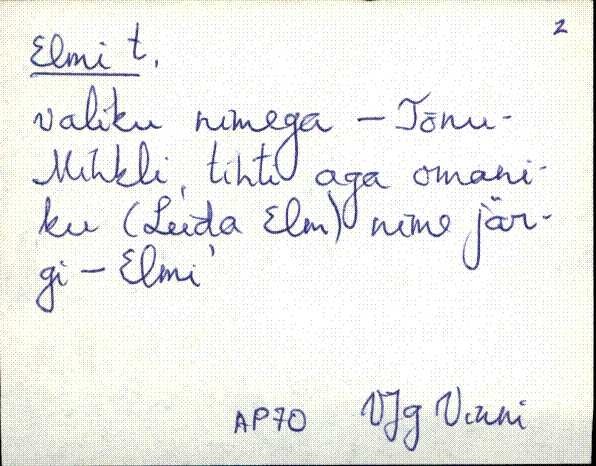 2
Elmi t.
valiku nimega – Tõnu-
Mihkli, tihti aga omani-
ku (Leida Elm) nime jär-
gi – Elmi
AP70 VJg Vinni